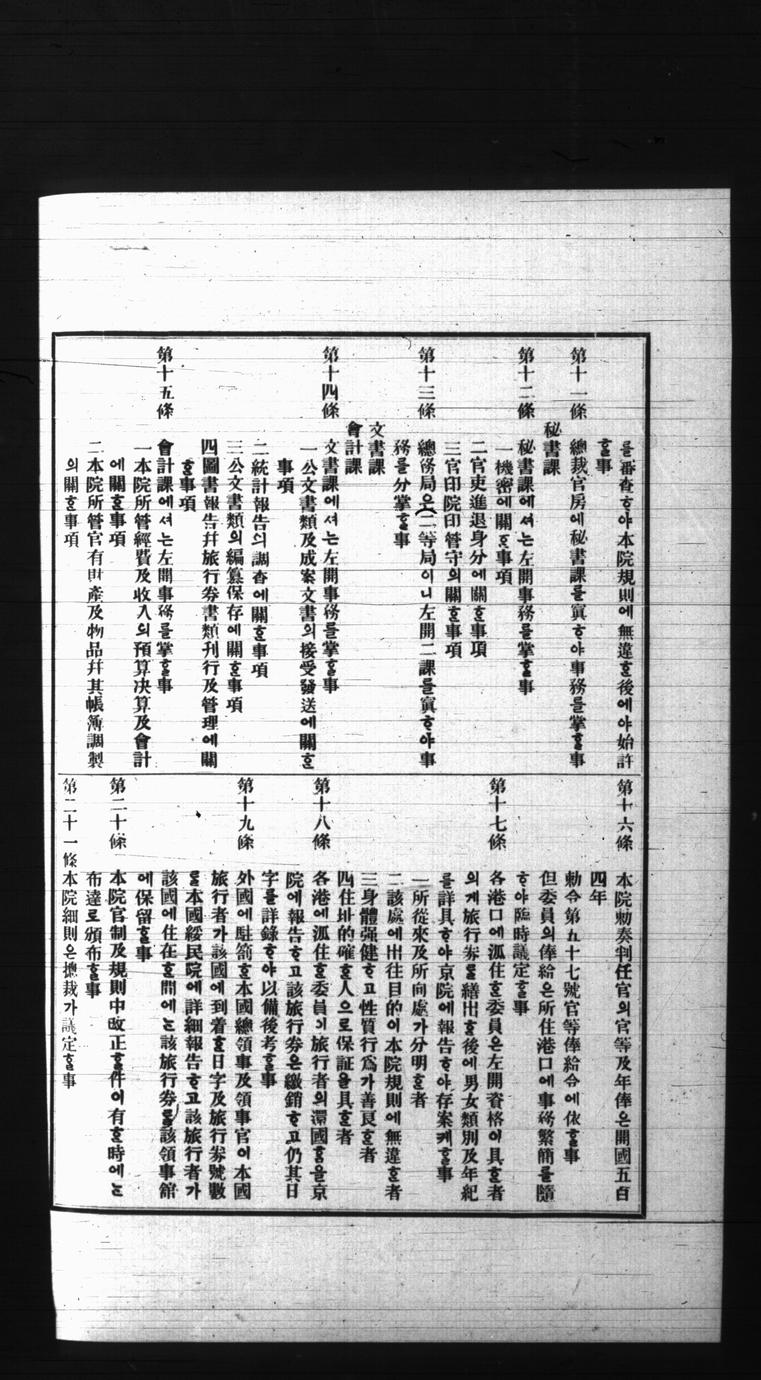 를審查ᄒᆞ야本院規則에無違ᄒᆞᆫ後에야始許
ᄒᆞᆯ事
第十一條 總裁官房에秘書課를寘ᄒᆞ야事務를掌ᄒᆞᆯ事
秘書課
第十二條 秘書課에셔ᄂᆞᆫ左開事務를掌ᄒᆞᆯ事
一機密에關ᄒᆞᆫ事項
二官吏進退身分에關ᄒᆞᆫ事項
三官印院印管守의關ᄒᆞᆫ事項
第十三條 總務局은(二等局이니左開二課를寘ᄒᆞ야事
務를分掌ᄒᆞᆯ事
文書課
會計課
第十四條 文書課에셔ᄂᆞᆫ左開事務를掌ᄒᆞᆯ事
一公文書類及成案文書의接受發送에關ᄒᆞᆫ
事項
二統計報告의調查에關ᄒᆞᆫ事項
三公文書類의編纂保存에關ᄒᆞᆫ事項
四圖書報告幷旅行券書類刊行及管理에關
ᄒᆞᆫ事項
第十五條 會計課에셔ᄂᆞᆫ左開事務를掌ᄒᆞᆯ事
一本院所管經費及收入의預算决算及會計
에關ᄒᆞᆫ事項
二本院所管官有財產及物品幷其帳簿調製
의關ᄒᆞᆫ事項
第十六條 本院勅奏判任官의官等及年俸은開國五百
四年
勅令第五十七號官等俸給令에依ᄒᆞᆯ事
但委員의俸給은所住港口에事務繁簡를隨
ᄒᆞ야臨時議定ᄒᆞᆯ事
第十七條 各港口에派住ᄒᆞᆫ委員은左開資格이具ᄒᆞᆫ者
의게旅行券을繕出ᄒᆞᆫ後에男女類別及年紀
를詳具ᄒᆞ야京院에報告ᄒᆞ야存案케ᄒᆞᆯ事
一所從來及所向處가分明ᄒᆞᆫ者
二該處에出往目的이本院規則에無違ᄒᆞᆫ者
三身體强健ᄒᆞ고性質行爲가善良ᄒᆞᆫ者
四住址的確ᄒᆞᆫ人으로保証을具ᄒᆞᆫ者
第十八條 各港에派住ᄒᆞᆫ委員이旅行者의還國홈을京
院에報告ᄒᆞ고該旅行券은繳銷ᄒᆞ고仍其日
字를詳錄ᄒᆞ야以備後考ᄒᆞᆯ事
第十九條 外國에駐箚ᄒᆞᆫ本國總領事及領事官이本國
旅行者가該國에到着ᄒᆞᆫ日字及旅行券號數
를本國綏民院에詳細報告ᄒᆞ고該旅行者가
該國에住在ᄒᆞᆫ間에ᄂᆞᆫ該旅行券을該領事館
에保留ᄒᆞᆯ事
第二十條 本院官制及規則中改正ᄒᆞᆯ件이有ᄒᆞᆫ時에ᄂᆞᆫ
布達로頒布ᄒᆞᆯ事
第二十一條本院細則은摠裁가議定ᄒᆞᆯ事